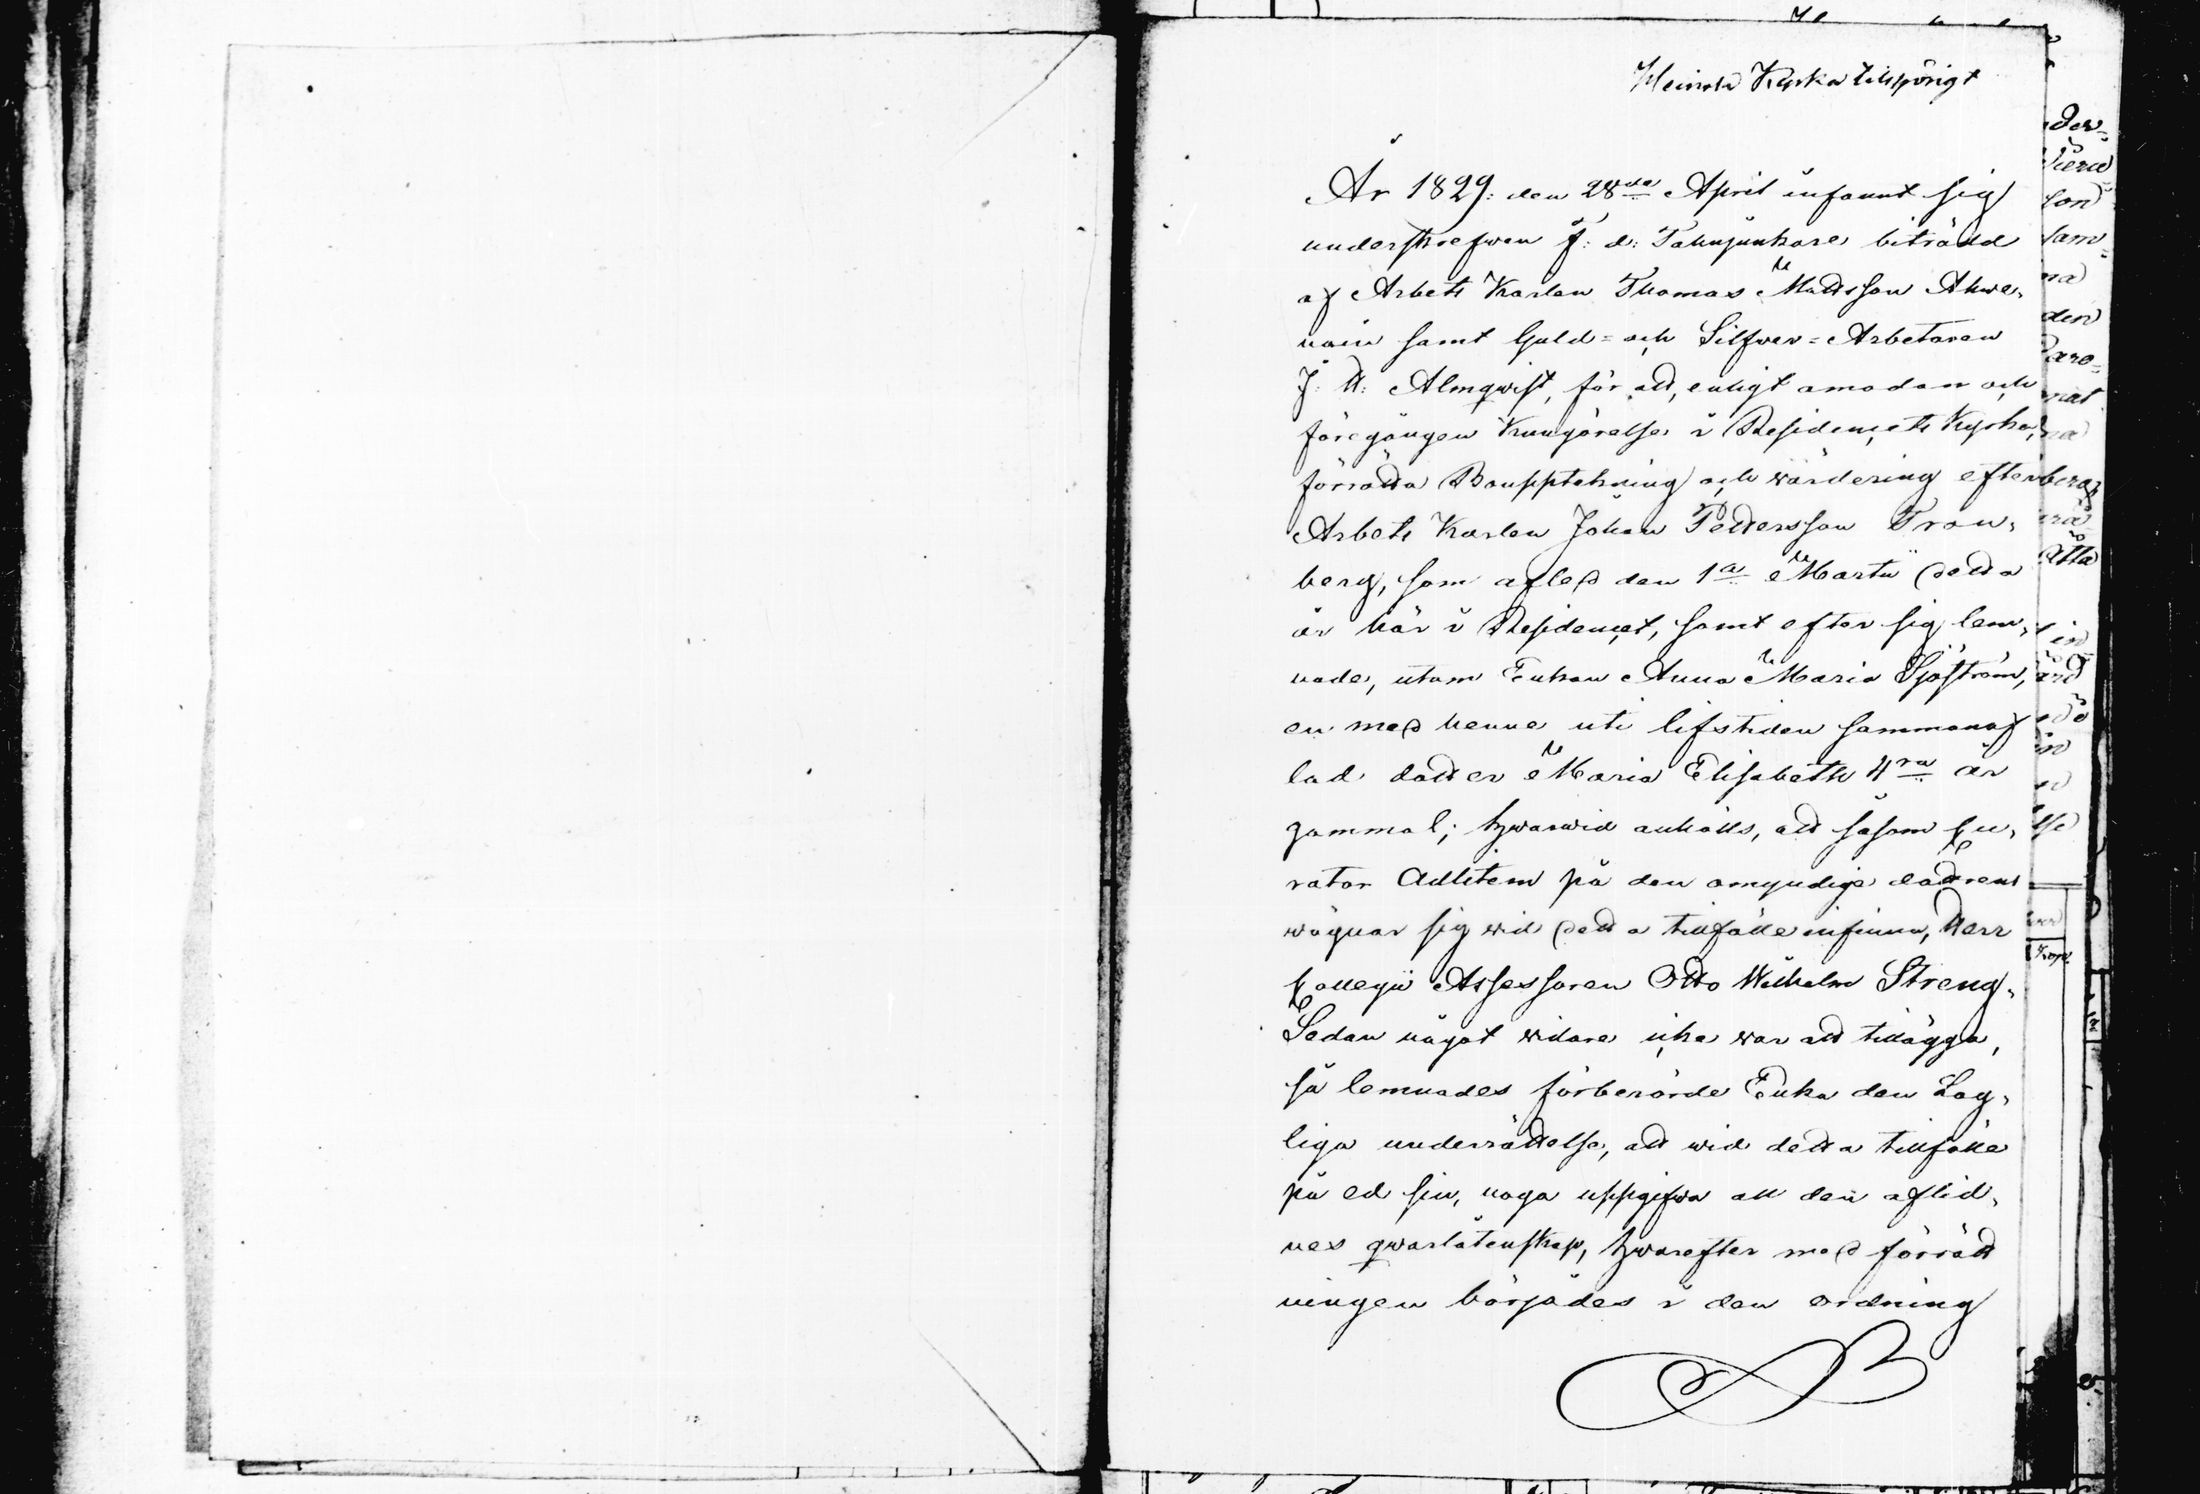 Heinola Kyrka tillhörigt
År 1829: den 28de April infannt sig
underskrefwen f: d: Fanujunkare biträdd
af Arbets Karlen Thomas Mattsson Ahwe,
nain samt Guld= och Silfwer=Arbetaren
J: H: Almqwist, för att, enligt anmodan och
föregången Kungörelse i Residencets Kyrka,
förrätta Boupptekning och wärdering efter
Arbets Karlen Johan Pettersson Tran,
berg, som afled den 1a Martii detta
år här i Residencet, samt efter sig lem,
nade, utom Enkan Anna Maria Sjöström,
en med henne uti lifstiden sammanaf
lad dotter Maria Elisabeth 4ra år
gammal; hwarwid anhölls, att såsom Cu,
rator Adlitem på den omyndiga dottrens
wägnar sig wid detta tillfälle infinna, Herr
Collegii Assessoren Otto Wilhelm Streng.
Sedan något widare icke war att tillägga,
så lemnades förberörde Enka den Lag,
liga underrättelse, att wid detta tillfälle
på ed sin, noga uppgifwa all den aflid,
nes qwarlåtenskap, hwarefter med förrätt
ningen börjades i den ordning